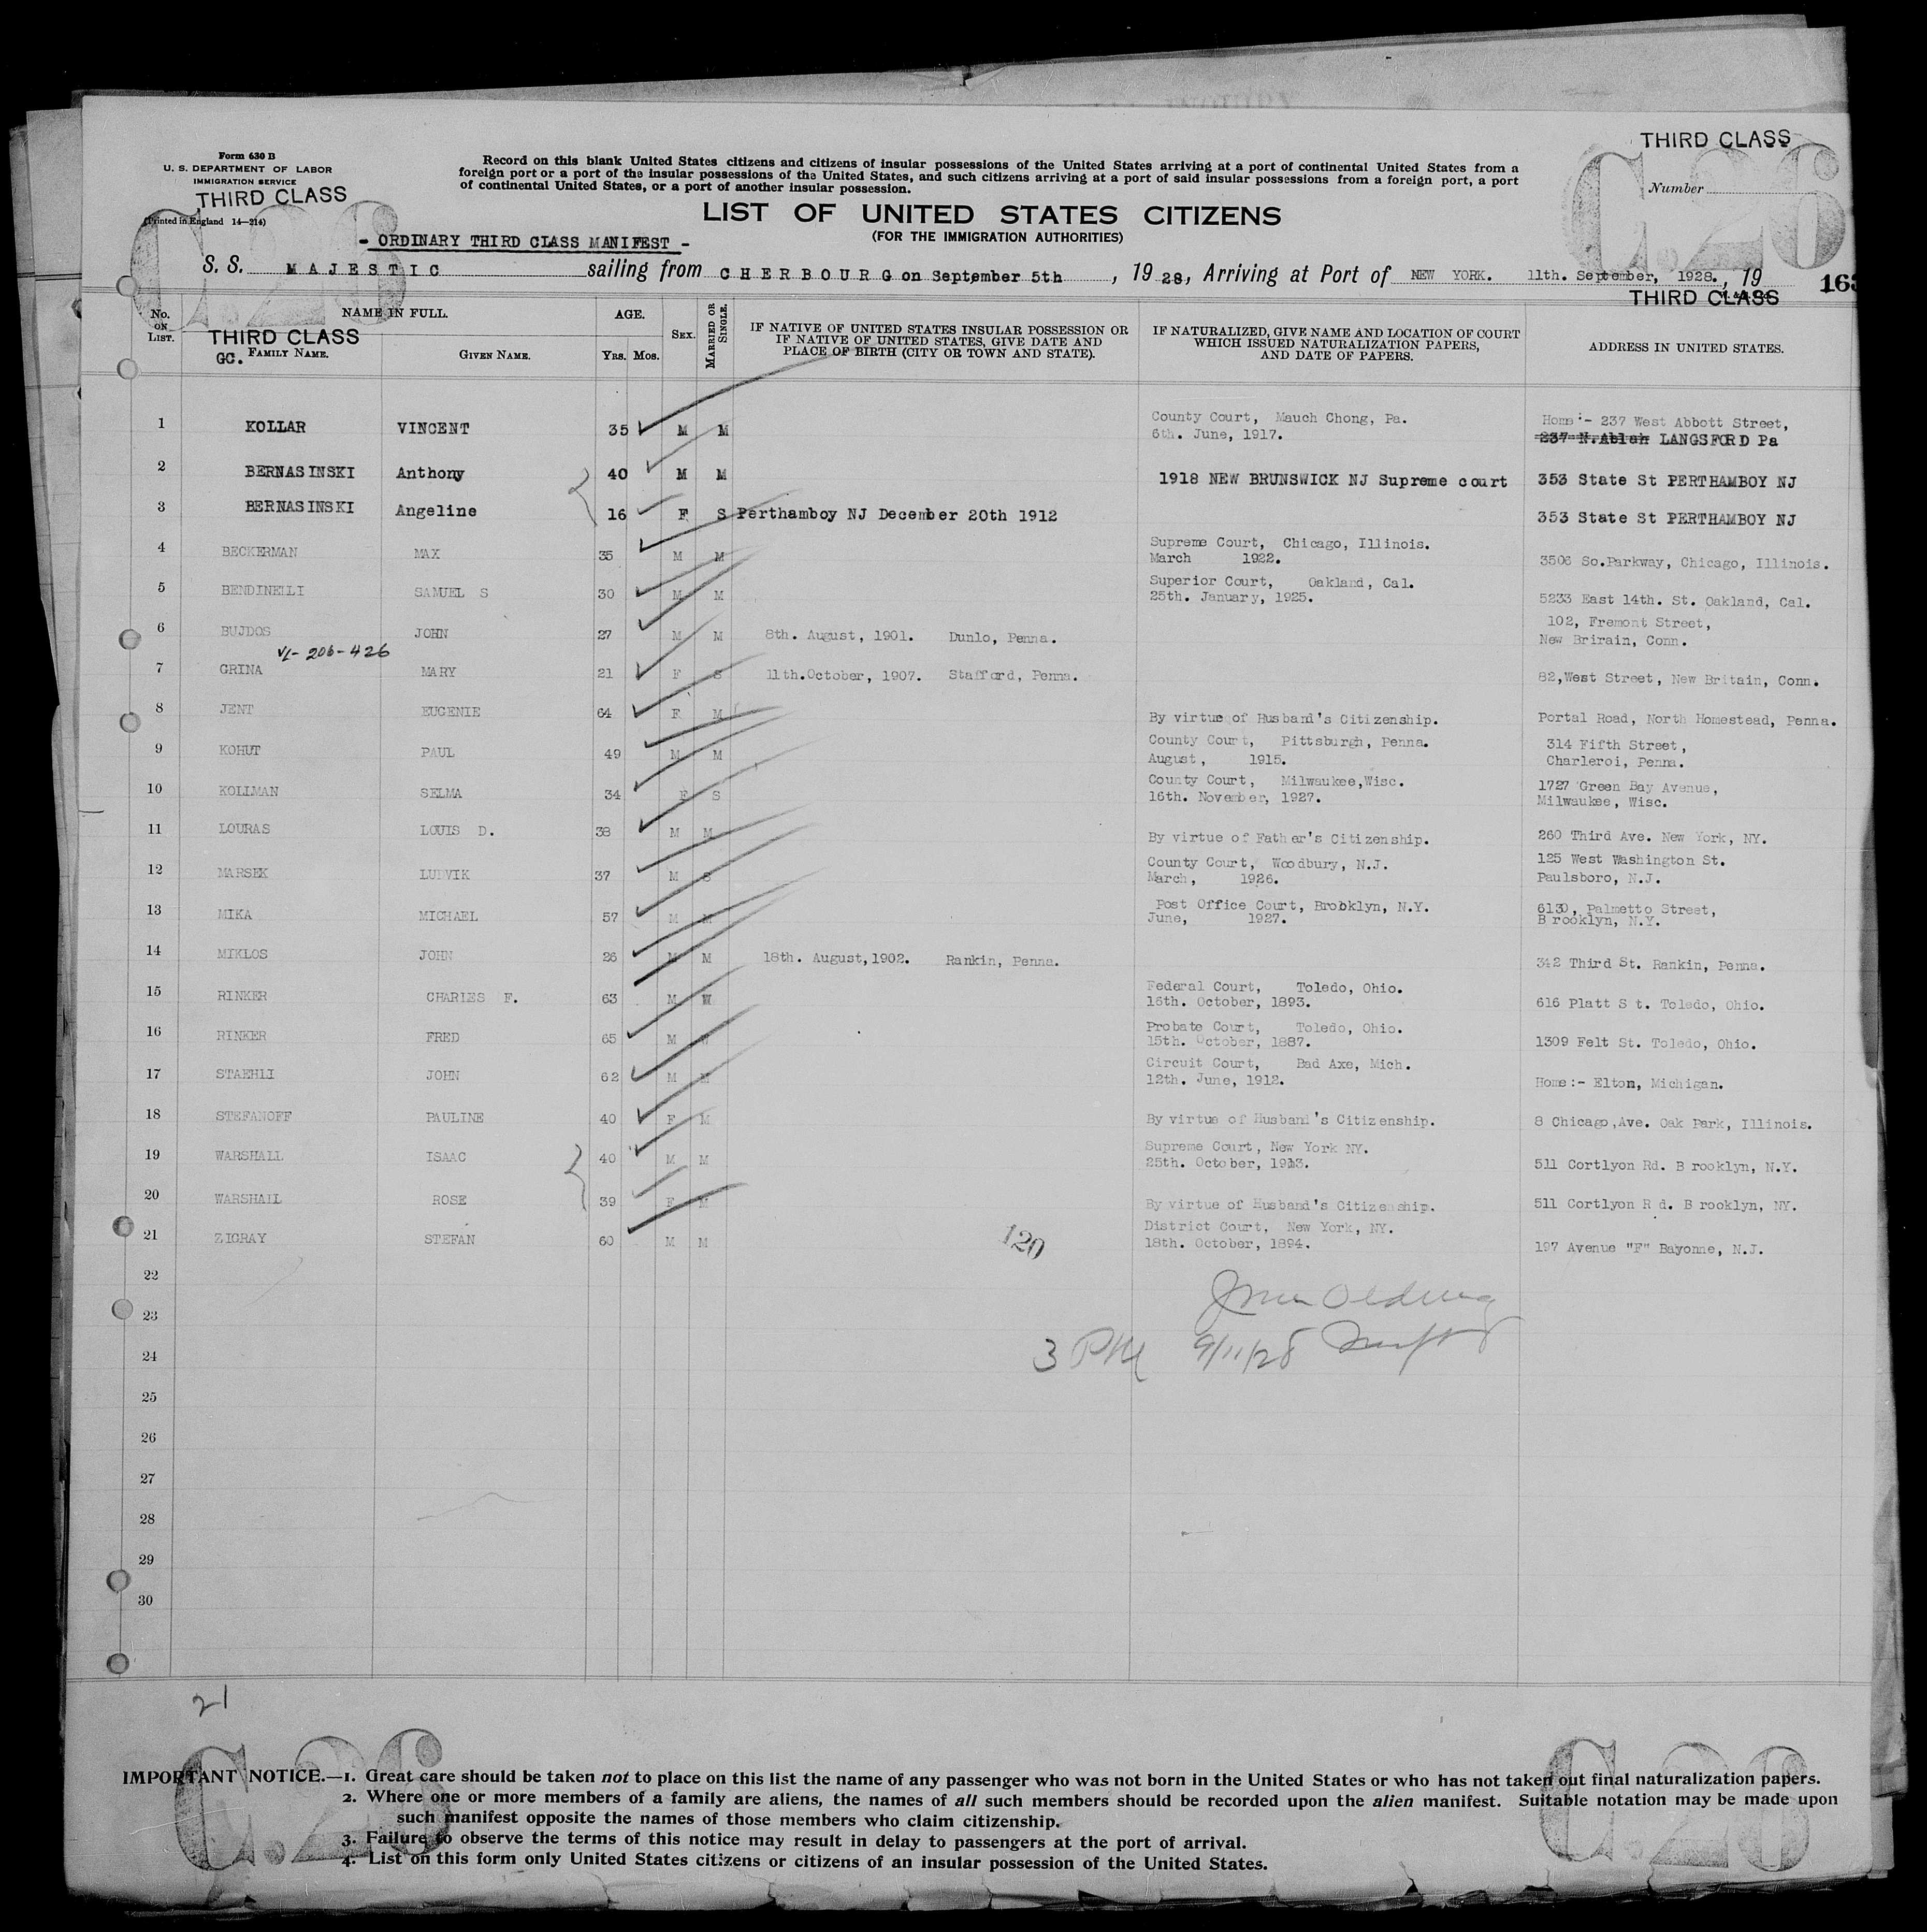 THIRD CLASS
C.26
Number
Form 630 B
U. S. DEPARTMENT OF LABOR
IMMIGRATION SERVICE
THIRD CLASS
(Printed in England 14—214)
C.26
Record on this blank United States citizens and citizens of insular possessions of the United States arriving at a port of continental United States from a
foreign port or a port of the insular possessions of the United States, and such citizens arriving at a port of said insular possessions from a foreign port, a port
of continental United States, or a port of another insular possession.
LIST OF UNITED STATES CITIZENS
(FOR THE IMMIGRATION AUTHORITIES)
- ORDINARY THIRD CLASS MANIFEST -
S. S. MAJESTIC sailing from CHERBOURG on September 5th, 1928, Arriving at Port of NEW YORK. 11th. September, 1928., 19
163
THIRD CLASS
No. ON LIST. NAME IN FULL. AGE. SEX. MARRIED OR SINGLE. IF NATIVE OF UNITED STATES INSULAR POSSESSION OR IF NATIVE OF UNITED STATES, GIVE DATE AND PLACE OF BIRTH (CITY OR TOWN AND STATE). IF NATURALIZED, GIVE NAME AND LOCATION OF COURT WHICH ISSUED NATURALIZATION PAPERS, AND DATE OF PAPERS. ADDRESS IN UNITED STATES.
THIRD CLASS
GC. FAMILY NAME. GIVEN NAME. YRS. MOS.
1 KOLLAR VINCENT 35 M M County Court, Mauch Chong, Pa. 6th. June, 1917. Home:- 237 West Abbott Street, 237 N.Ablsh LANGSFORD Pa
2 BERNASINSKI Anthony 40 M M 1918 NEW BRUNSWICK NJ Supreme court 353 State St PERTHAMBOY NJ
3 BERNASINSKI Angeline 16 F S Perthamboy NJ December 20th 1912 353 State St PERTHAMBOY NJ
4 BECKERMAN MAX 35 M M Supreme Court, Chicago, Illinois. March 1922. 3506 So.Parkway, Chicago, Illinois.
5 BENDINELLI SAMUEL S 30 M M Superior Court, Oakland, Cal. 25th. January, 1925. 5233 East 14th. St. Oakland, Cal.
6 BUJDOS JOHN 27 M M 8th. August, 1901. Dunlo, Penna. 102, Fremont Street, New Brirain, Conn.
VL-206-426
7 GRINA MARY 21 F S 11th.October, 1907. Stafford, Penna. 82,West Street, New Britain, Conn.
8 JENT EUGENIE 64 F M By virtue of Husband's Citizenship. Portal Road, North Homestead, Penna.
9 KOHUT PAUL 49 M M County Court, Pittsburgh, Penna. August, 1915. 314 Fifth Street, Charleroi, Penna.
10 KOLLMAN SELMA 34 F S County Court, Milwaukee,Wisc. 16th. November, 1927. 1727 Green Bay Avenue, Milwaukee, Wisc.
11 LOURAS LOUIS D. 38 M M By virtue of Father's Citizenship. 260 Third Ave. New York, NY.
12 MARSEK LUDVIK 37 M S County Court, Woodbury, N.J. March, 1926. 125 West Washington St. Paulsboro, N.J.
13 MIKA MICHAEL 57 M M Post Office Court, Brobklyn, N.Y. June, 1927. 6130, Palmetto Street, B rooklyn, N.Y.
14 MIKLOS JOHN 26 M M 18th. August,1902. Rankin, Penna. 342 Third St. Rankin, Penna.
15 RINKER CHARLES F. 63 M W Federal Court, Toledo, Ohio. 16th. October, 1893. 616 Platt S t. Toledo, Ohio.
16 RINKER FRED 65 M W Probate Court, Toledo, Ohio. 15th. October, 1887. 1309 Felt St. Toledo, Ohio.
17 STAEHLI JOHN 62 M M Circuit Court, Bad Axe, Mich. 12th. June, 1912. Home:- Elton, Michigan.
18 STEFANOFF PAULINE 40 F M By virtue of Husband's Citizenship. 8 Chicago,Ave. Oak Park, Illinois.
19 WARSHALL ISAAC 40 M M Supreme Court, New York NY. 25th. October, 1913. 511 Cortlyon Rd. B rooklyn, N.Y.
20 WARSHALL ROSE 39 F M By virtue of Husband's Citizenship. 511 Cortlyon R d. B rooklyn, NY.
21 ZIGRAY STEFAN 60 M M District Court, New York, NY. 18th. October, 1894. 197 Avenue "F" Bayonne, N.J.
120
22
23
3 PM 9/11/28
24
25
26
27
28
29
30
21
C.26
C.26
IMPORTANT NOTICE.—1. Great care should be taken not to place on this list the name of any passenger who was not born in the United States or who has not taken out final naturalization papers.
2. Where one or more members of a family are aliens, the names of all such members should be recorded upon the alien manifest. Suitable notation may be made upon
such manifest opposite the names of those members who claim citizenship.
3. Failure to observe the terms of this notice may result in delay to passengers at the port of arrival.
4. List on this form only United States citizens or citizens of an insular possession of the United States.